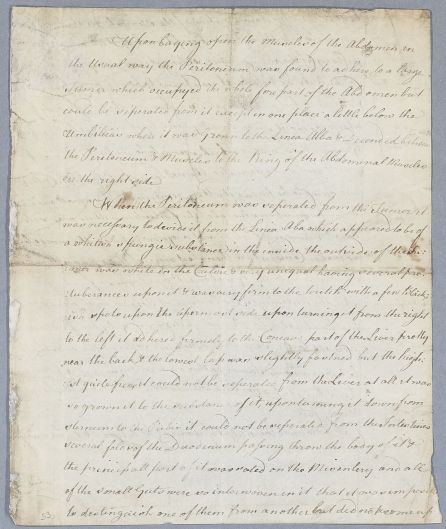 Upon Laying open the Muscles of the Abdomen in
the Usual way the Peritoneum was found to adhere to a large
tumor which occupyed the whole fore part of the Abdomen but
could be seperated from it except in one place a little below the
Umbilicus where it was grown to the Linea Alba & decended between
the Peritoneum & Muscles to the Ring of the Abdominal Muscles
on the right side
When the Peritoneum was seperated from the Tumor it
was necessary to devide it from the Linea Alba which appeared to be of
a whitish spungie substance in the inside the outside of the
was white in the & very unequal having several pro
tuberances upon it & was very firm to the touch with a few black
spots upon the upermost side upon turning it from the right
to the left it adhered firmely to the Concave part of the Liver pretty
near the back & the lowest part was slightly fastned but the high
est quite firm it could not be seperated from the Liver at all it was
so grown to the substance of it, upon turning it down from
to the it could not be seperated from the Intestines
several folds of the Duodenum passing throw the body of it &
the principall part of it was rated on the Mesentery and all
of the small Guts were so interwoven in it that it was impossible
to distinguish one of them from another but did not
53